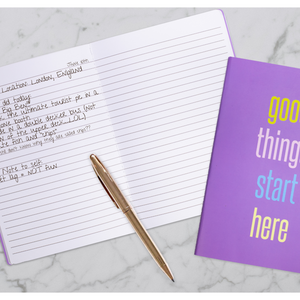 Location: London, England
did today:
Big Ben!
the ultimate tourist pic in a
one booth
de in a double decker bus (Not
n of the upper deck, LOL)
te fish and "chips"
Note to self:
et lag = NOT fun
good
things
start
here